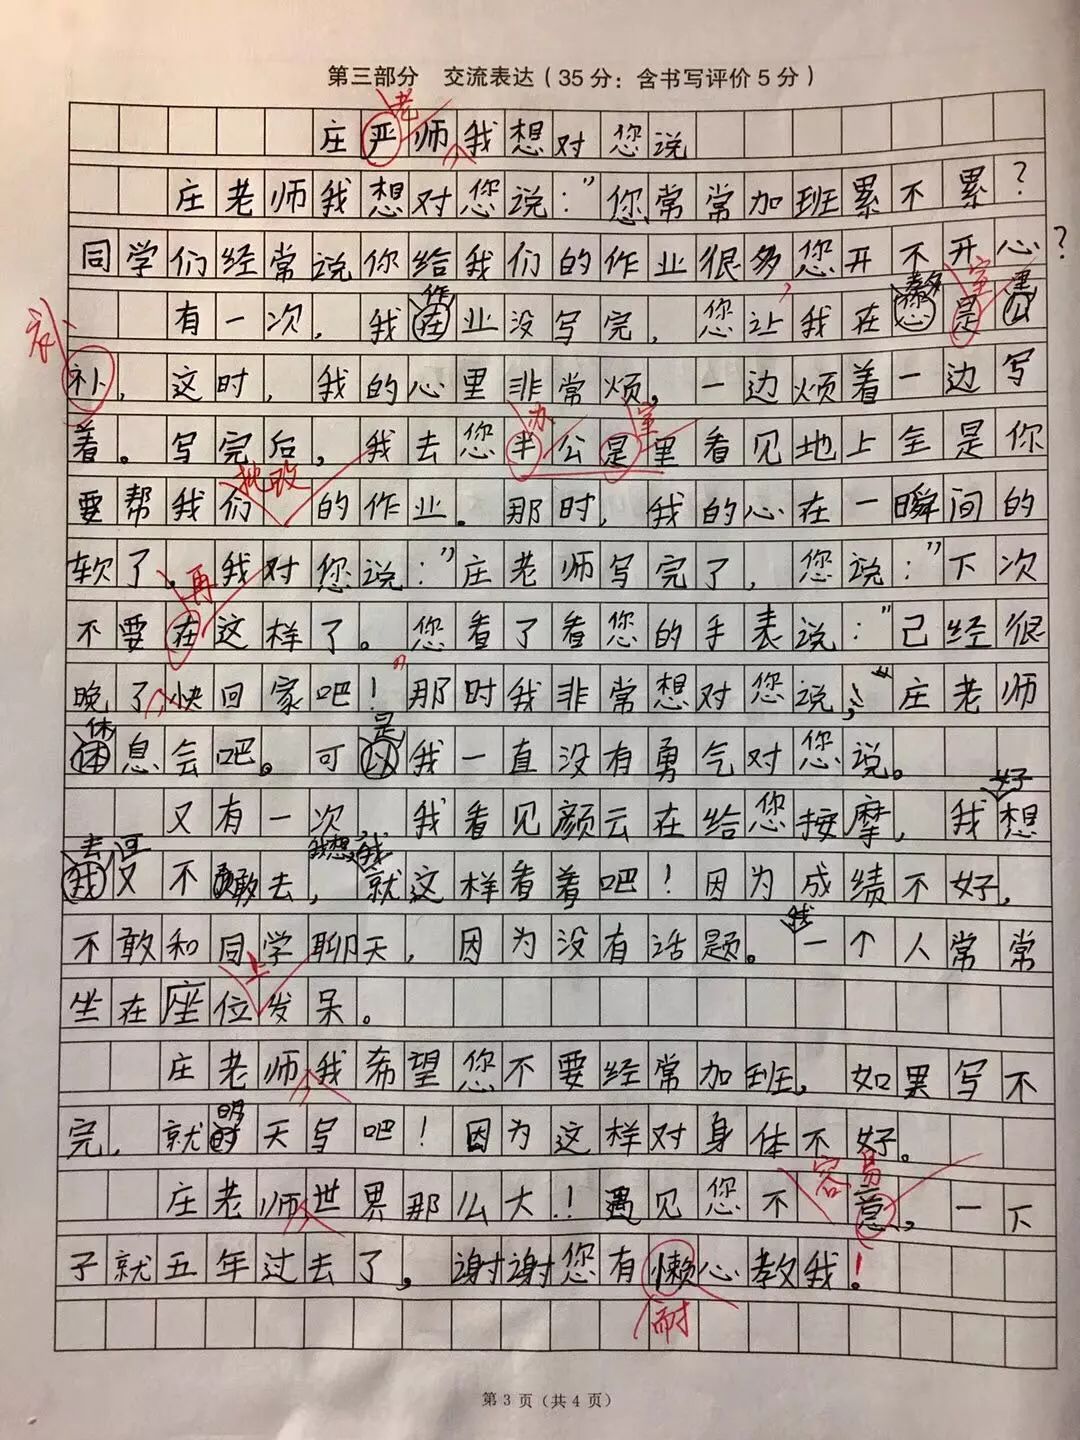 第三部分 交流表达（35分：含书写评价5分）
老
庄严师我想对您说
庄老师我想对您说：”您常常加班累不累？
同学们经常说你给我们的作业很多您开不开心？
作 教 室 里
有一次，我在业没写完，您让我在您是公
补，这时，我的心里非常烦，一边烦着一边写
办 室
着。写完后，我去您半公是里看见地上全是你
批改
要帮我们的作业。那时，我的心在一瞬间的
软了，我对您说：”庄老师写完了，您说：”下次
再
不要在这样了。您看了看您的手表说：”已经很
晚了快回家吧！那时我非常想对您说，庄老师
休 是
体息会吧。可以我一直没有勇气对您说。
好
又有一次 我看见颜云在给您按摩，我想
去 可 我想 我
我又不敢去，就这样看着吧！因为成绩不好，
我
不敢和同学聊天，因为没有话题。一个人常常
上
坐在座位发呆。
庄老师我希望您不要经常加班，如果写不
明
完，就时天写吧！因为这样对身体不好。
容易
庄老师世界那么大！遇见您不意，一下
子就五年过去了，谢谢您有懒心教我！
耐
第3页（共4页）